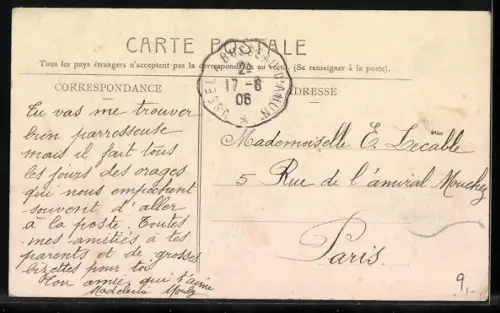 CARTE POSTALE
Tous les pays étrangers n'acceptent pas la correspondance au recto. (Se renseigner à la poste).
CORRESPONDANCE
ADRESSE
USSEL A BUSSEAU-D'AHUN
2º
17-8
06
Tu vas me trouver
bien parresseuse
mais il fait tous
les jours des orages
qui nous empêchent
souvent d'aller
à la poste. Toutes
mes amitiés à tes
parents et de grosses
bisettes pour toi
Ton amie qui t'aime
Madeleine
Mademoiselle E. Lecable
5 Rue de l'amiral Mouchez
Paris
9,-